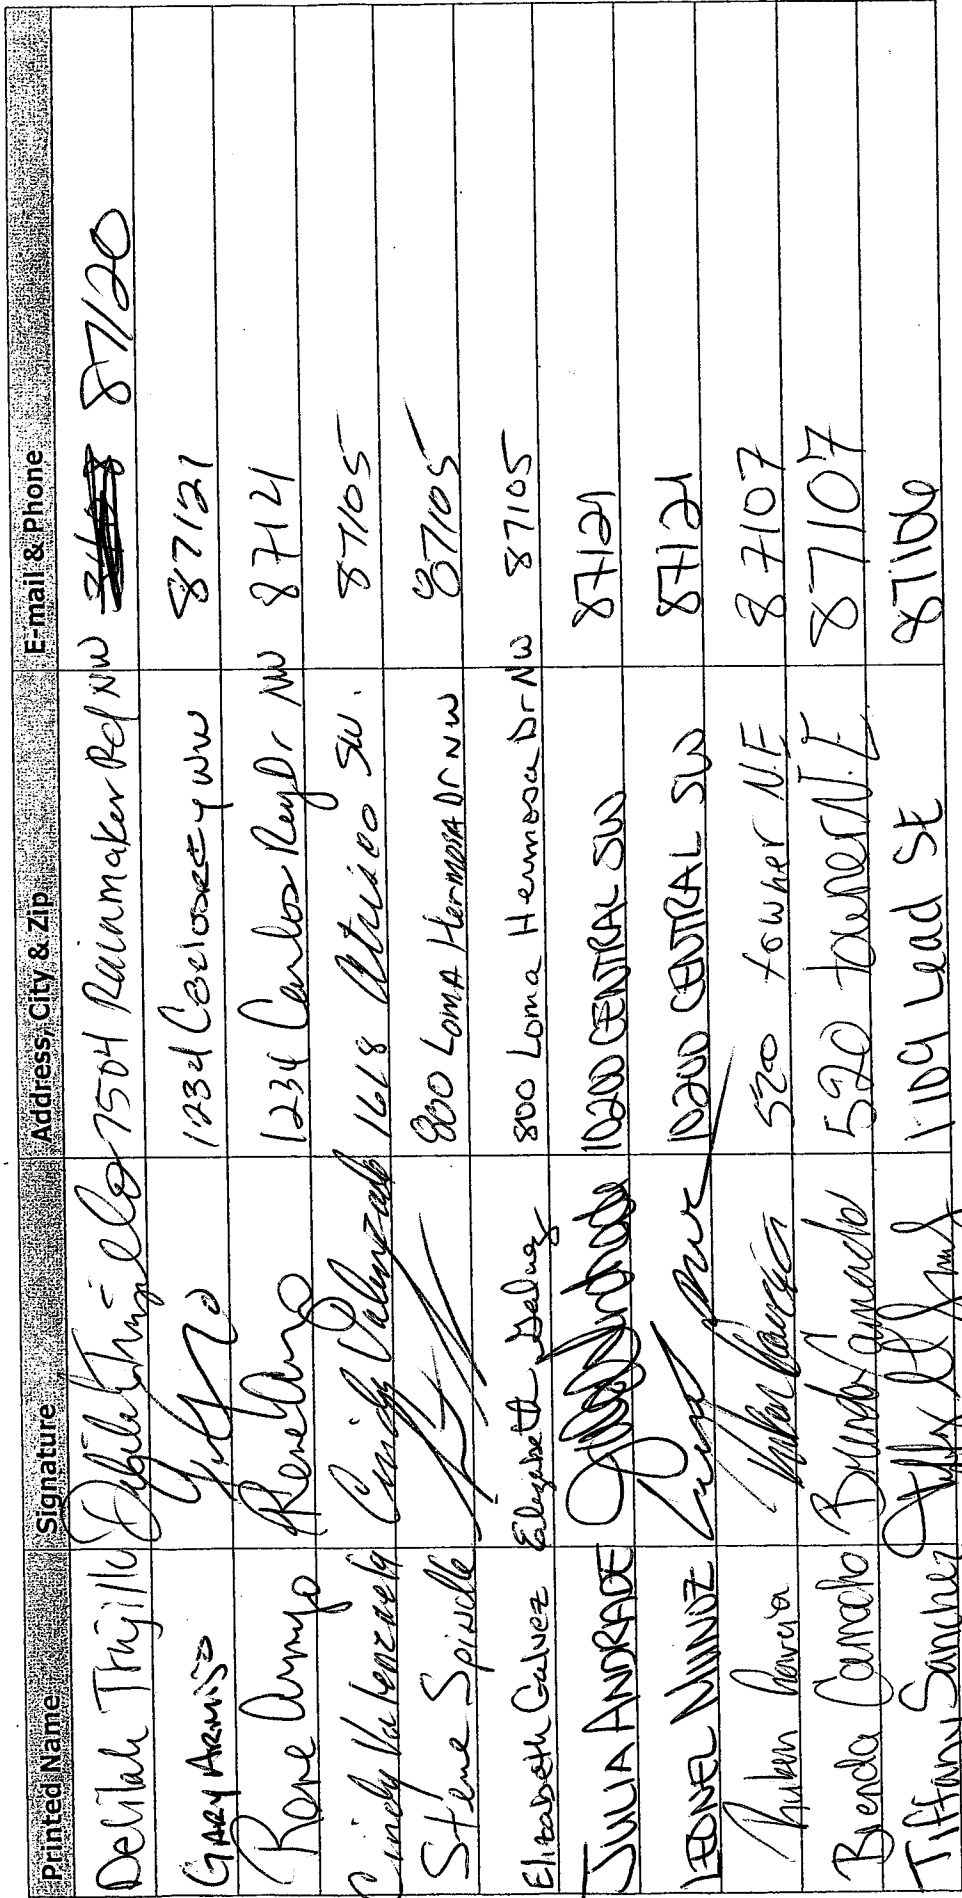 Printed Name Signature Address, City & Zip E-mail & Phone
Delilah Trujillo Delilah Trujillo 7504 Rainmaker Rd NW 87120
GARY ARMIJO 1234 NW 87121
Rene Armijo Rene Armijo 1234 Carlos Rey Dr NW 87121
Cindy Valenzuela Cindy Valenzuela 1618 Atrisco SW. 87105
Steve Spindle 800 LOMA Hermosa Dr NW 87105
Elizabeth Galvez Elizabeth Galvez 800 Loma Hermosa Dr NW 87105
JULIA ANDRADE 10200 CENTRAL SW 87121
LEONEL MUNOZ 10200 CENTRAL SW 87121
Ruben 520 towner N.E 87107
Brenda Camacho Brenda Camacho 520 towner N.E 87107
Tiffany Sanchez 1109 Lead SE 87106